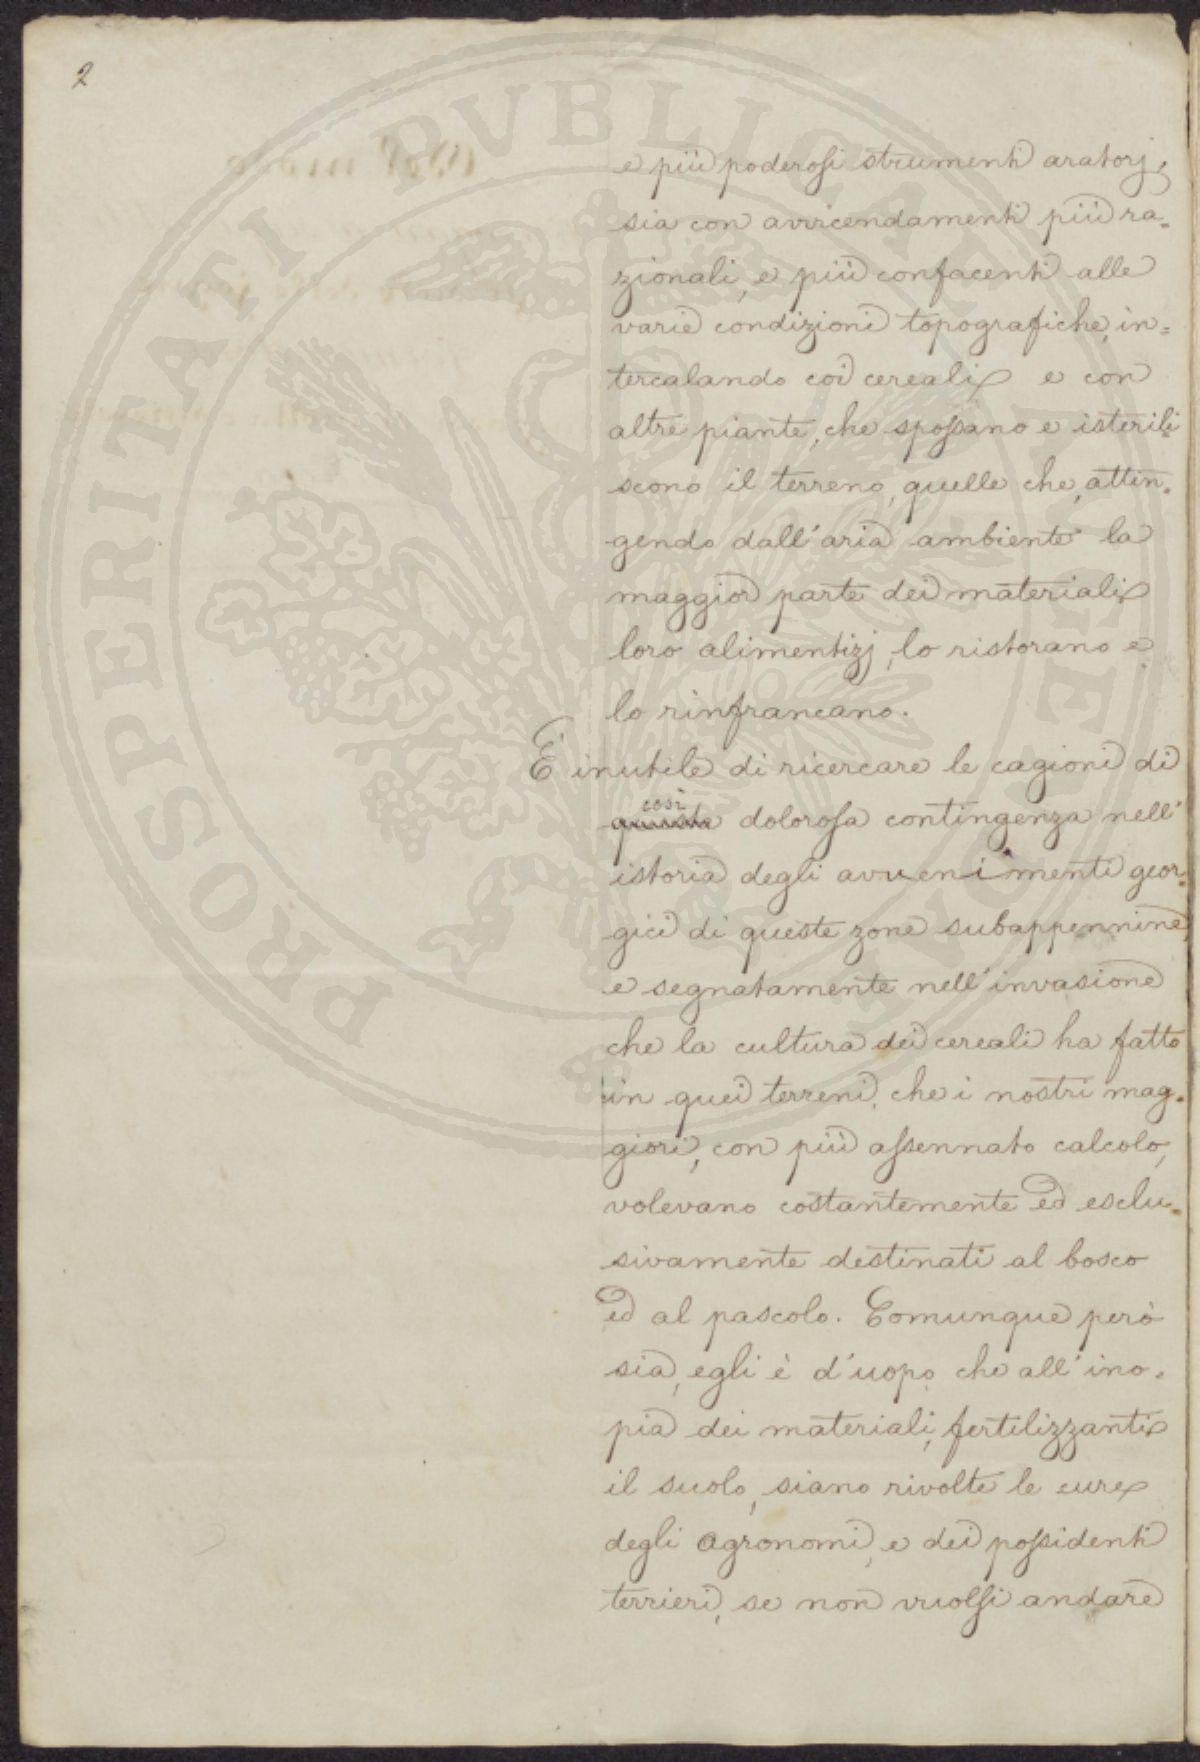 2
PROSPERITATI PVBLICAE AVGENDAE
e più poderosi strumenti aratorj,
sia con avvicendamenti più ra=
zionali, e più confacenti alle
varie condizioni topografiche, in=
tercalando coi cereali e con
altre piante, che spossano e isterili
scono il terreno, quelle che, attin=
gendo dall'aria ambiente la
maggior parte dei materiali
loro alimentizj, lo ristorano e
lo rinfrancano.
È inutile di ricercare le cagioni di
così
dolorosa contingenza nell'
istoria degli avvenimenti geor=
gici di queste zone subappennine,
e segnatamente nell'invasione
che la cultura dei cereali ha fatto
in quei terreni, che i nostri mag=
giori, con più assennato calcolo,
volevano costantemente ed esclu=
sivamente destinati al bosco
ed al pascolo. Comunque però
sia, egli è d'uopo che all'ino=
pia dei materiali, fertilizzanti
il suolo, siano rivolte le cure
degli agronomi, e dei possidenti
terrieri, se non vuolsi andare